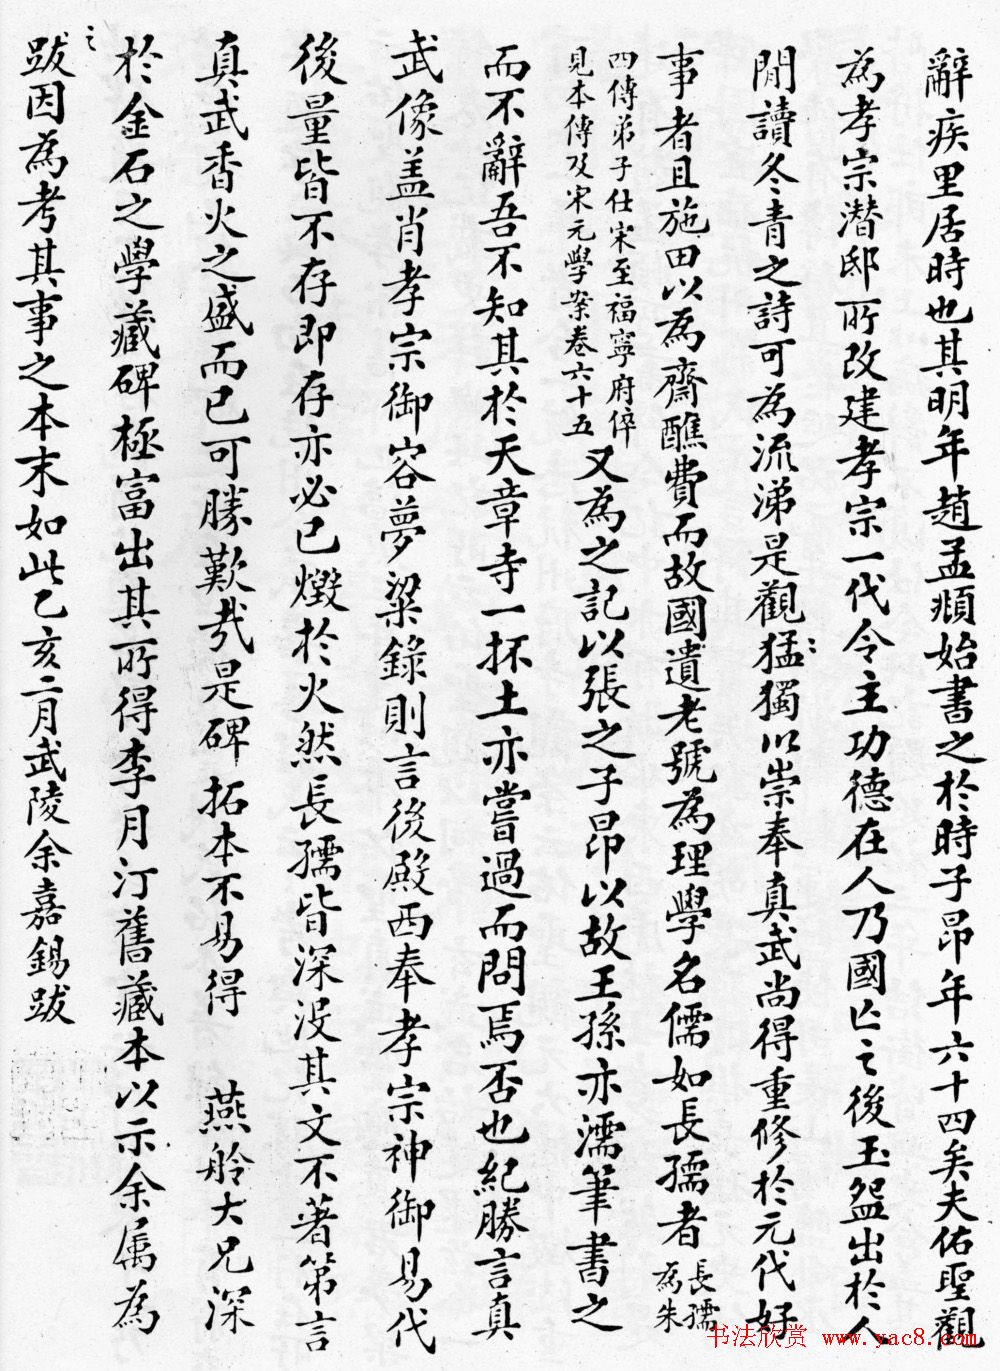 辭疾里居時也其明年趙孟頫始書之於時子昂年六十四矣夫佑聖觀
為孝宗潛邸所改建孝宗一代令主功德在人乃國亡之後玉盌出於人
間讀冬青之詩可為流涕是觀猛獨以崇奉真武尚得重修於元代好
事者且施田以為齋醮費而故國遺老號為理學名儒如長孺者
長孺
為朱
四傳弟子仕宋至福寧府倅
見本傳及宋元學案卷六十五
又為之記以張之子昂以故王孫亦濡筆書之
而不辭吾不知其於天章寺一抔土亦嘗過而問焉否也紀勝言真
武像盖肖孝宗御容夢粱錄則言後殿西奉孝宗神御易代
後量皆不存即存亦必已燬於火然長孺皆深沒其文不著第言
真武香火之盛而已可勝歎哉是碑拓本不易得 燕舲大兄深
於金石之學藏碑極富出其所得李月汀舊藏本以示余属為
之
跋因為考其事之本末如此乙亥二月武陵余嘉錫跋
书法欣赏 www.yac8.com